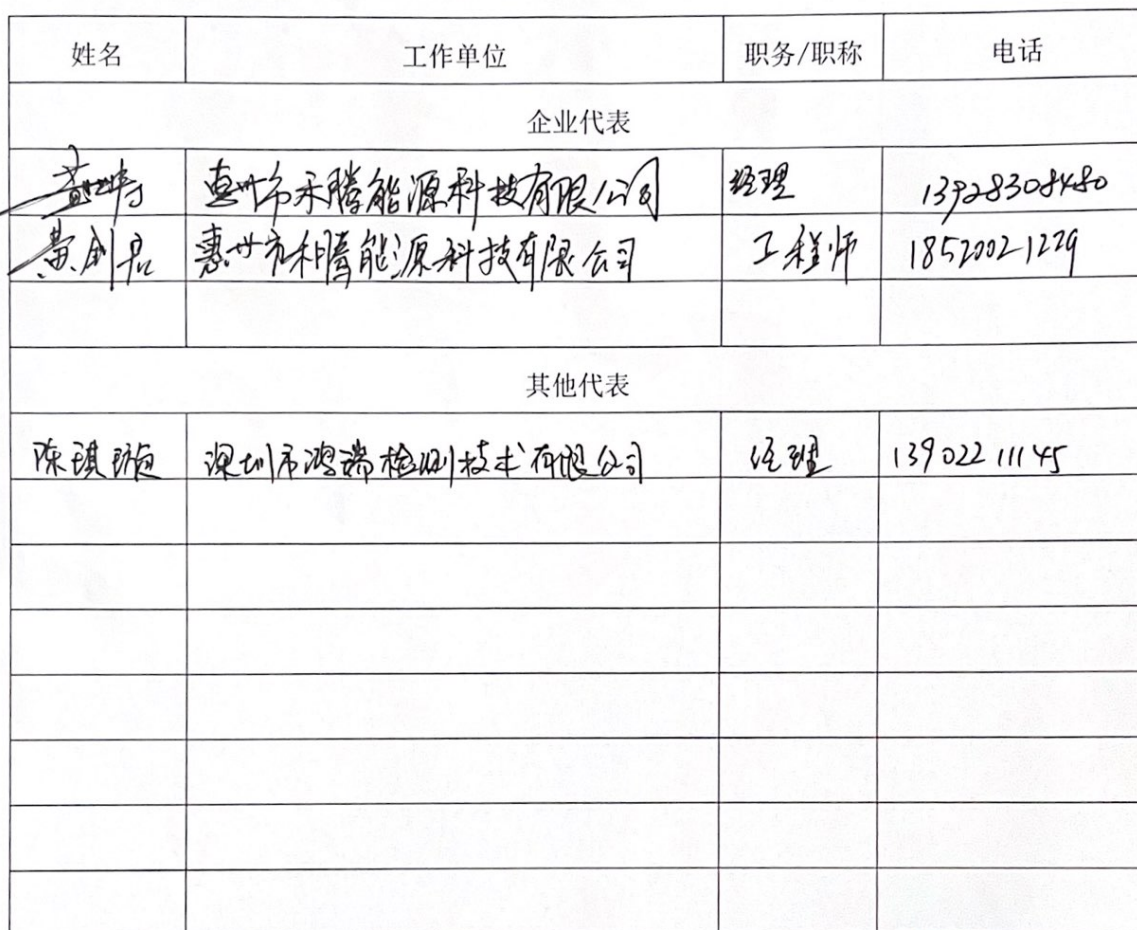 姓名 工作单位 职务/职称 电话
企业代表
惠州市禾腾能源科技有限公司 经理 13928308480
黄剑君 惠州市和腾能源科技有限公司 工程师 18520021229
其他代表
陈琪 深圳市鸿瑞检测技术有限公司 经理 13902211145